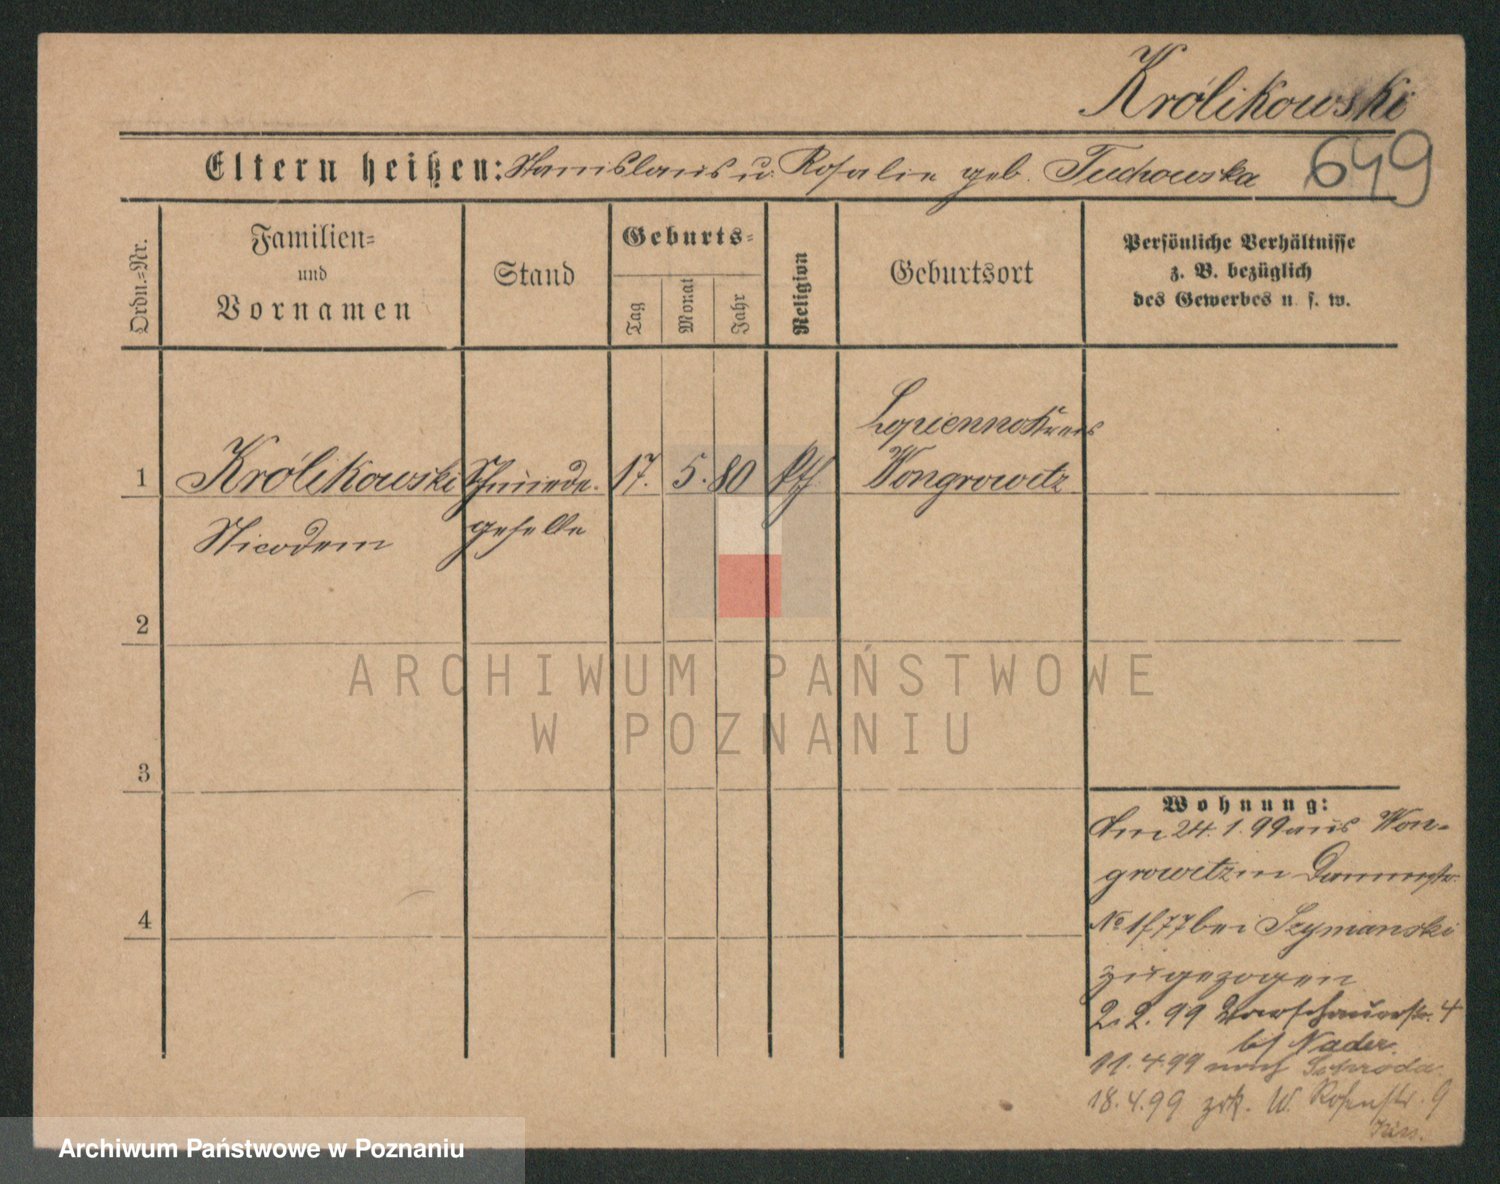 Królikowski
Eltern heißen: Stanislaus u. Rosalie geb. Tuchowska
649
Ordn.=Nr.
Familien=
und
Vornamen
Stand
Geburts=
Tag
Monat
Jahr
Religion
Geburtsort
Persönliche Verhältnisse
z. B. bezüglich
des Gewerbes u. s. w.
Lopienno Kreis
1 Królikowski Schmiede- 17. 5. 80 kth Wongrowitz
Nicodem geselle
2
ARCHIWUM PAŃSTWOWE
W POZNANIU
3
Wohnung:
Am 24.1.99 aus Won-
growitz in Dammstr.
No 1/77 bei Szymanski
4
zugezogen
2.2.99 Warschauerstr. 4
bei Nader.
11.4.99 nach Schroda.
18.4.99 zrk. W. Rosenstr. 9
Archiwum Państwowe w Poznaniu